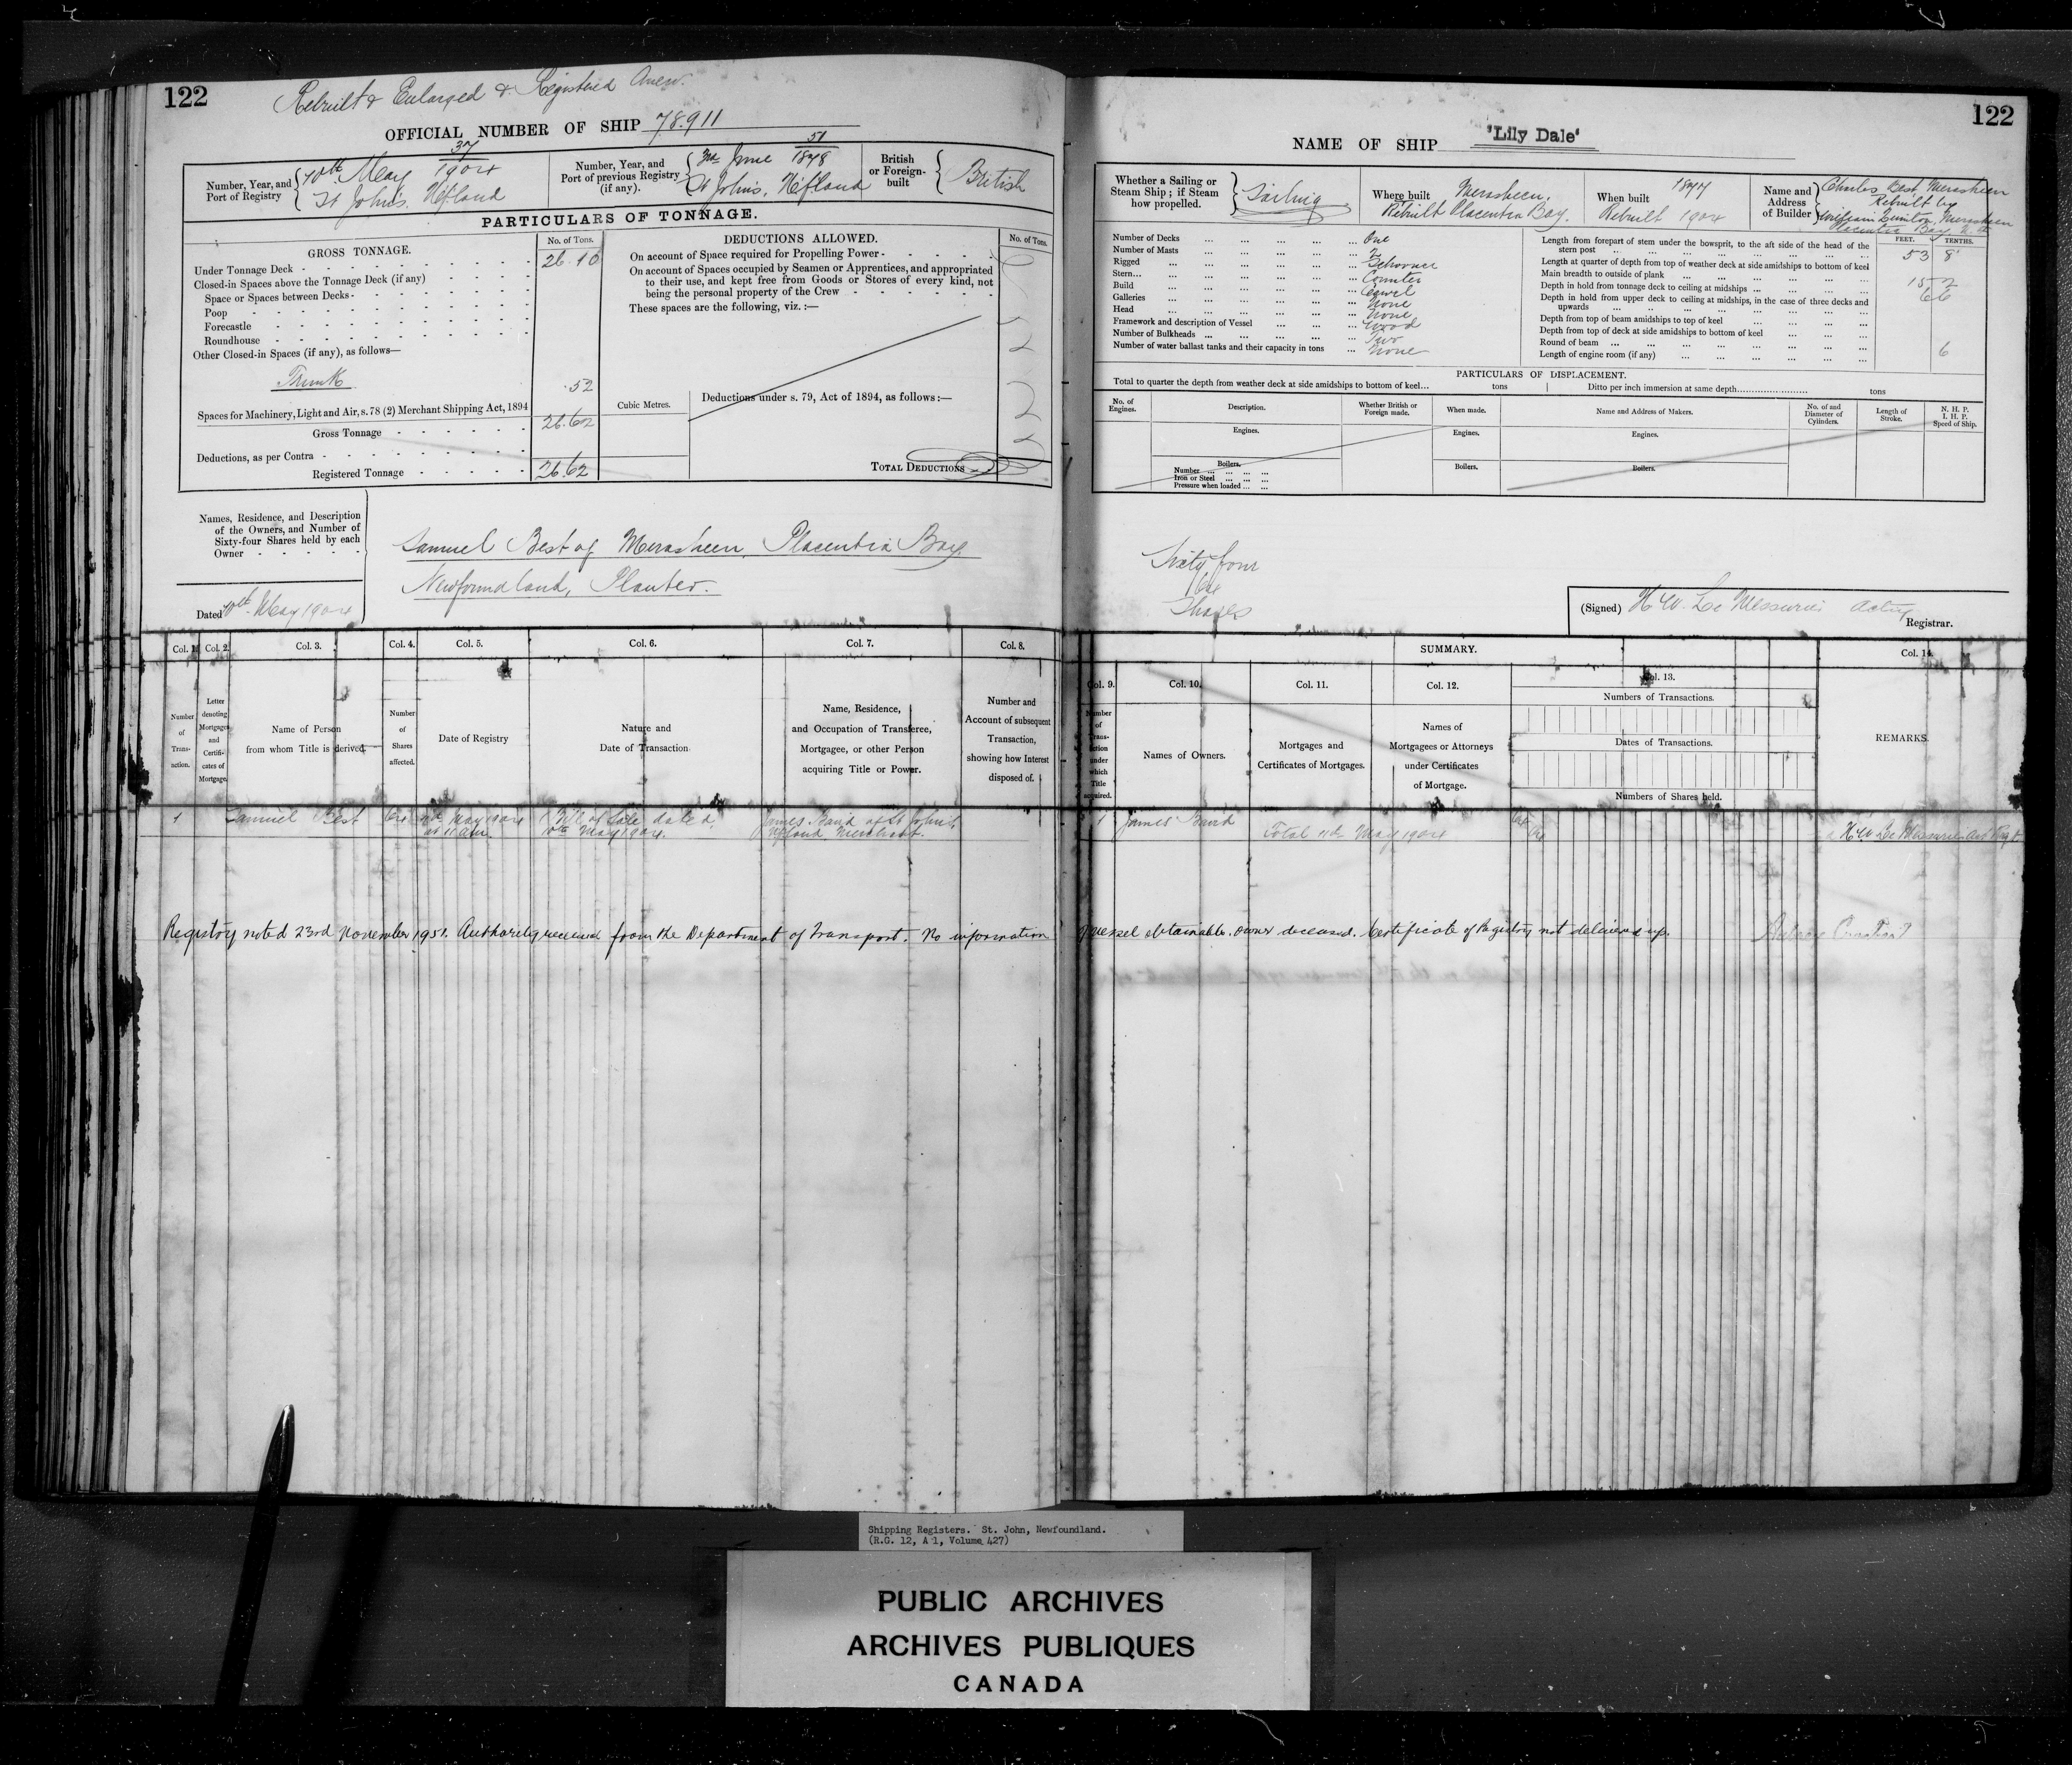 122
Rebuilt & Enlarged & Registered Anew.
OFFICIAL NUMBER OF SHIP 78.911
Number, Year, and Port of Registry
37
10th May 1904
St John's. Nfland
Number, Year, and Port of previous Registry (if any).
51
3rd June 1878
St John's, Nfland
British or Foreign-built
British
PARTICULARS OF TONNAGE.
GROSS TONNAGE.
No. of Tons.
Under Tonnage Deck 26.10
Closed-in Spaces above the Tonnage Deck (if any)
Space or Spaces between Decks
Poop
Forecastle
Roundhouse
Other Closed-in Spaces (if any), as follows—
Trunk .52
Spaces for Machinery, Light and Air, s. 78 (2) Merchant Shipping Act, 1894
Gross Tonnage 26.62
Deductions, as per Contra
Registered Tonnage 26.62
DEDUCTIONS ALLOWED.
No. of Tons.
On account of Space required for Propelling Power
On account of Spaces occupied by Seamen or Apprentices, and appropriated
to their use, and kept free from Goods or Stores of every kind, not
being the personal property of the Crew
These spaces are the following, viz. :—
Cubic Metres.
Deductions under s. 79, Act of 1894, as follows :—
TOTAL DEDUCTIONS
Names, Residence, and Description
of the Owners, and Number of
Sixty-four Shares held by each
Owner
Samuel Best of Merasheen, Placentia Bay
Newfoundland, Planter.
Dated 10th May 1904
Col. 1. Col. 2. Col. 3. Col. 4. Col. 5. Col. 6. Col. 7. Col. 8.
Number of Transaction.
Letter denoting Mortgages and Certificates of Mortgage.
Name of Person from whom Title is derived.
Number of Shares affected.
Date of Registry
Nature and Date of Transaction
Name, Residence, and Occupation of Transferee, Mortgagee, or other Person acquiring Title or Power.
Number and Account of subsequent Transaction, showing how Interest disposed of.
1 Samuel Best 64 11th May 1904 at 11 am Bill of Sale dated 10th May 1904. James Baird of St John's Nfland Merchant.
122
NAME OF SHIP 'Lily Dale'
Whether a Sailing or Steam Ship ; if Steam how propelled.
Sailing
Where built
Merasheen,
Rebuilt Placentia Bay.
When built
1877
Rebuilt 1904
Name and Address of Builder
Charles Best, Merasheen
Rebuilt by
Merasheen
Placentia Bay
Number of Decks One
Number of Masts
Rigged Schooner
Stern Counter
Build Carvel
Galleries None
Head None
Framework and description of Vessel Wood
Number of Bulkheads Two
Number of water ballast tanks and their capacity in tons None
FEET. TENTHS.
Length from forepart of stem under the bowsprit, to the aft side of the head of the
stern post 53 8
Length at quarter of depth from top of weather deck at side amidships to bottom of keel
Main breadth to outside of plank 18 2
Depth in hold from tonnage deck to ceiling at midships 6 6
Depth in hold from upper deck to ceiling at midships, in the case of three decks and
upwards
Depth from top of beam amidships to top of keel
Depth from top of deck at side amidships to bottom of keel
Round of beam 6
Length of engine room (if any)
PARTICULARS OF DISPLACEMENT.
Total to quarter the depth from weather deck at side amidships to bottom of keel... tons
Ditto per inch immersion at same depth tons
No. of Engines.
Description.
Whether British or Foreign made.
When made.
Name and Address of Makers.
No. of and Diameter of Cylinders.
Length of Stroke.
N. H. P.
I. H. P.
Speed of Ship.
Engines.
Engines.
Engines.
Boilers.
Number
Iron or Steel
Pressure when loaded
Boilers.
Boilers.
Sixty four
64
Shares
(Signed) H W. Le Messurier Acting
Registrar.
SUMMARY.
Col. 9. Col. 10. Col. 11. Col. 12. Col. 13. Col. 14.
Number of Transaction under which Title acquired.
Names of Owners.
Mortgages and Certificates of Mortgages.
Names of Mortgagees or Attorneys under Certificates of Mortgage.
Numbers of Transactions.
Dates of Transactions.
Numbers of Shares held.
REMARKS.
1 James Baird 64
Total 11th May 1904 64
H W Le Messurier Act Regr.
Registry noted 23rd November 1951. Authority received from the Department of Transport. No information of vessel obtainable. owner deceased. Certificate of Registry not delivered up.
Shipping Registers. St. John, Newfoundland.
(R.G. 12, A 1, Volume 427)
PUBLIC ARCHIVES
ARCHIVES PUBLIQUES
CANADA